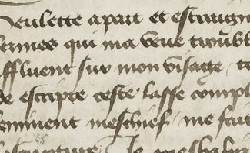 Seulette a part et estrang
lermes qui ma veue troubl
affluent sur mon visage
de escripre ceste lasse compl
eminent meschief me fait